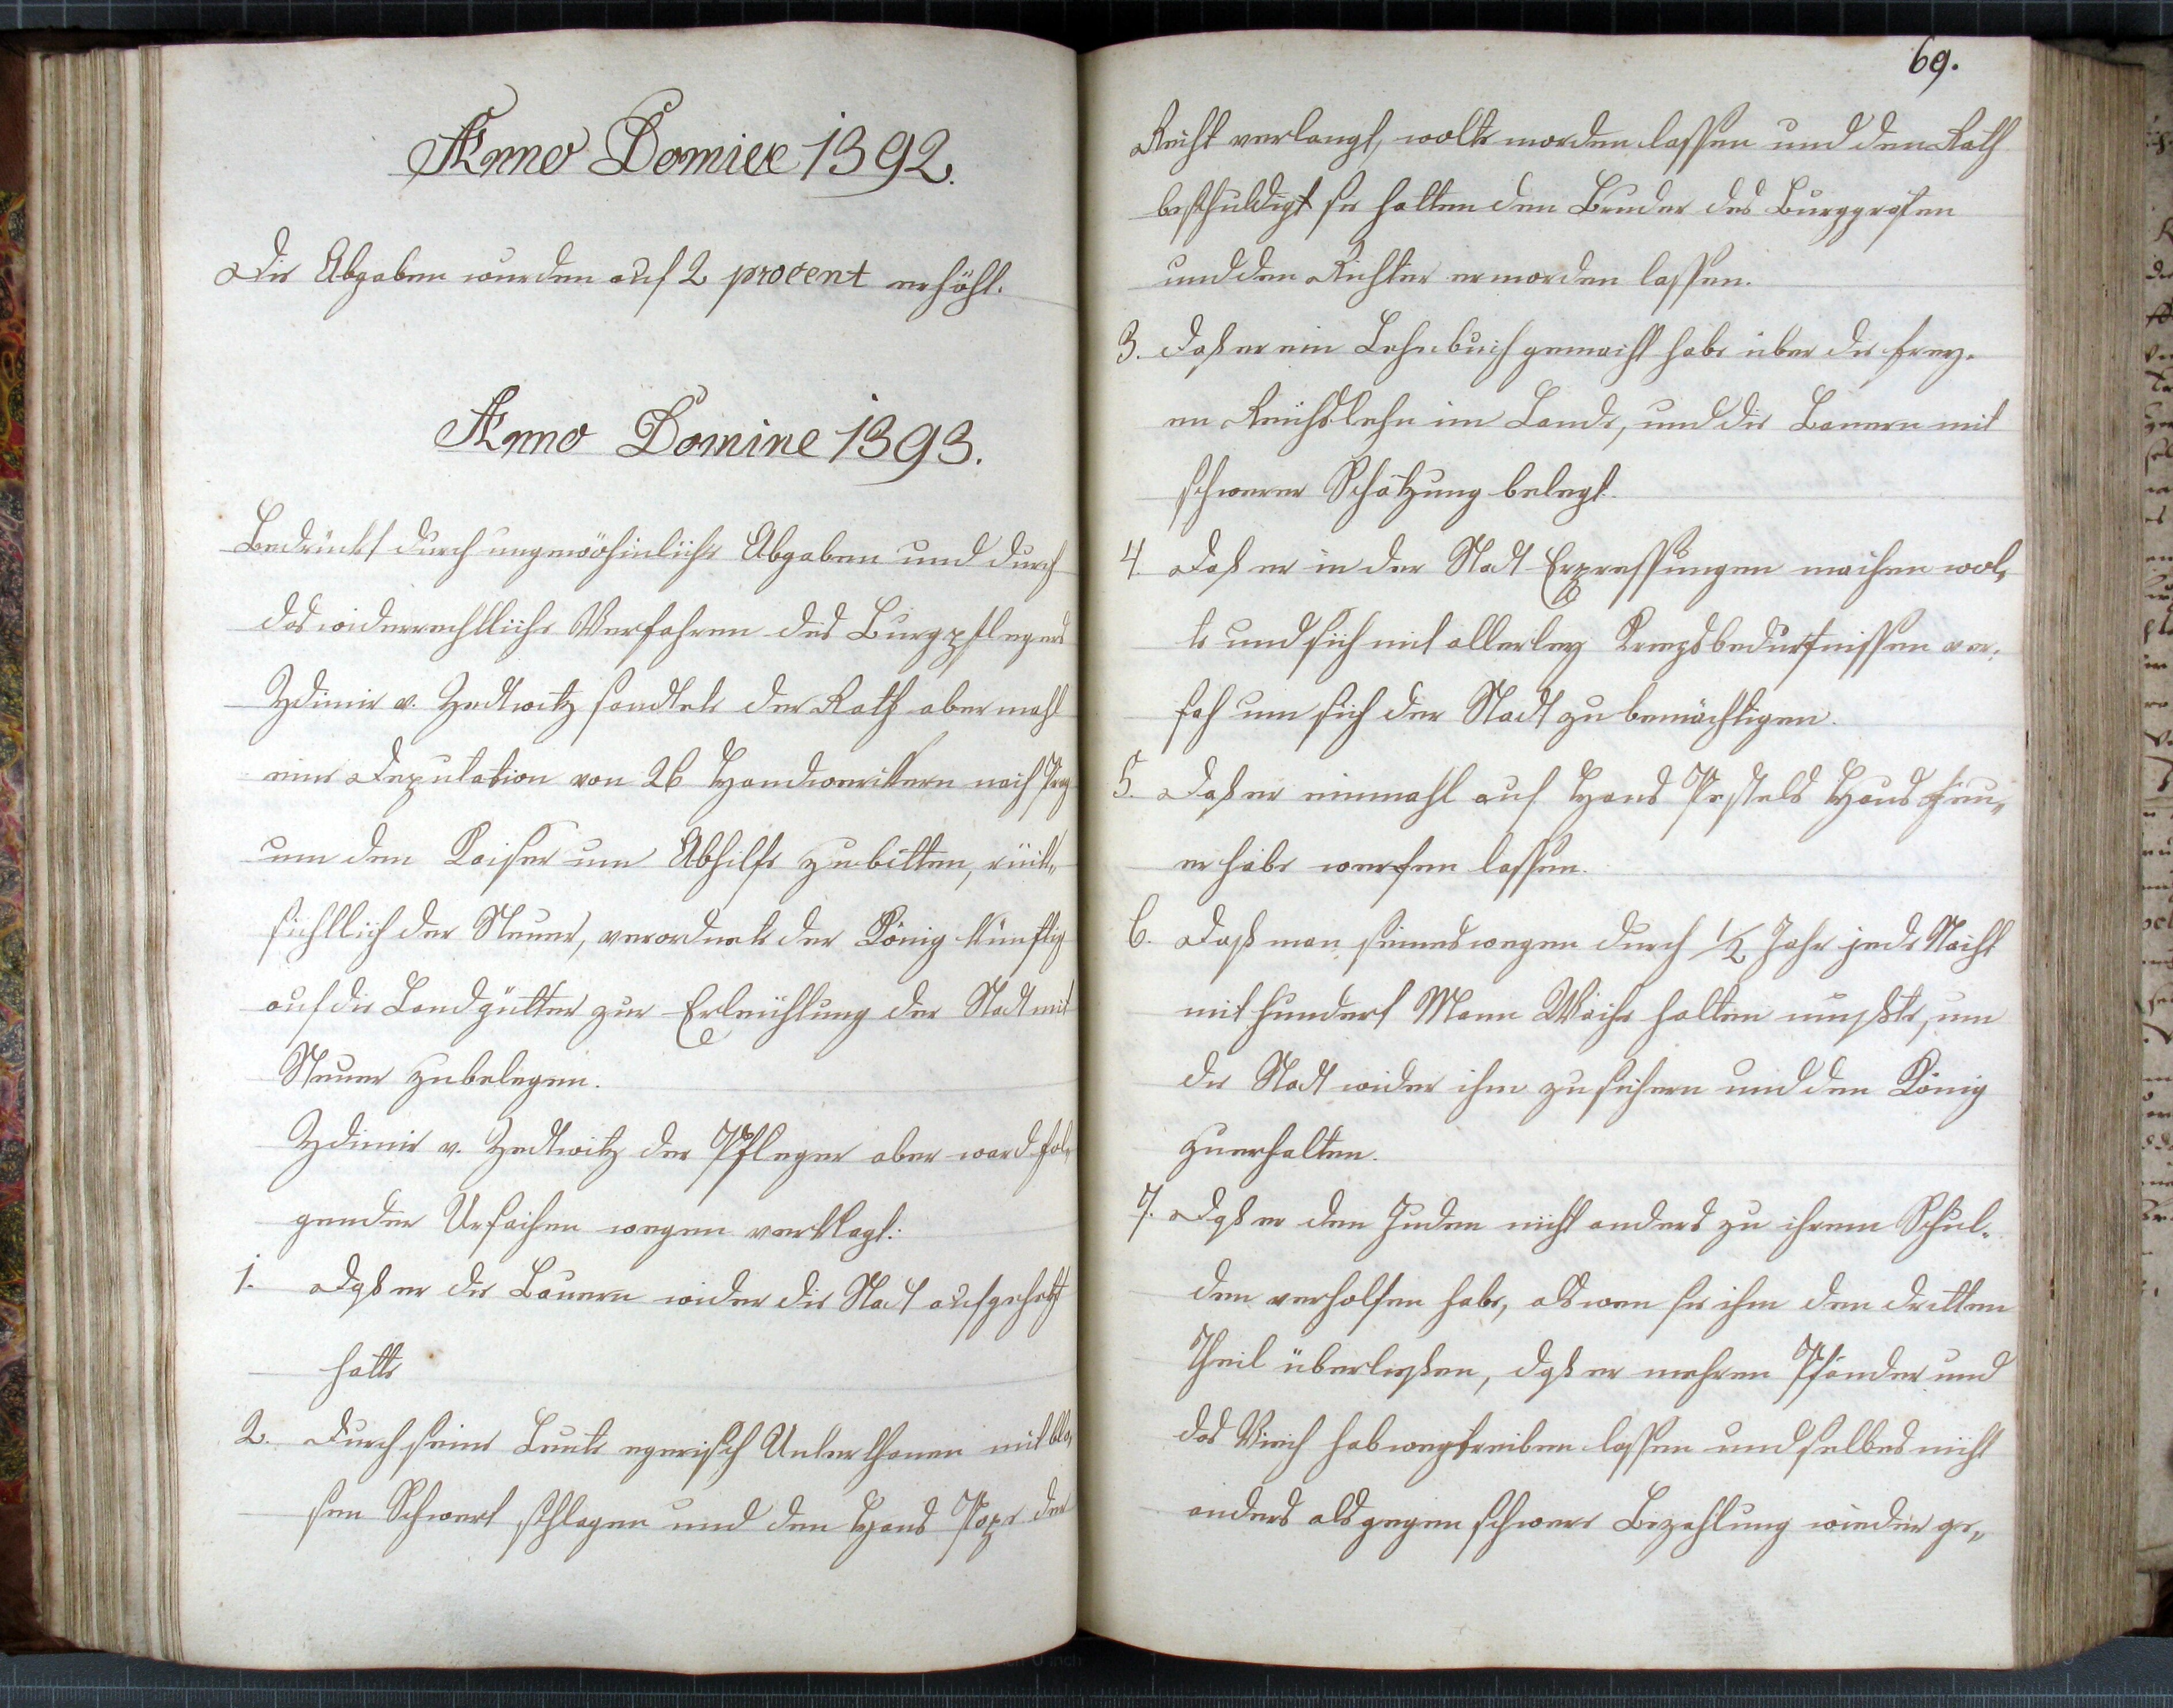 Anno Domine 1392.
Die Abgaben wurden auf 2 procent erhöht.
Anno Domine 1393.
Bedrückt durch ungewöhnliche Abgaben und durch
das widerrechtliche Verfahren des Burgpflegers
Zdimir v. Zedtwitz sandtete der Rath aber mahl
eine Deputation von 26 Handwerkern nach Prg
um den Kaiser um Abhilfe zu bitten, rück„
sichtlich der Steuer, verordnete der König künftig
auf die Landgütter zur Erleichtung der Stadt mit
Steuer zu belegen.
Zdimir v. Zedtwitz der Pfleger aber ward fol„
gender Ursachen wegen verklagt:
1. Daß er die Bauern wider die Stadt aufgehetzt
hatte
2. Durch seine Leute egerisch Unterthanen mit blo„
sen Schwert schlagen und den Hans Pope der
69.
Recht verlangt, wolte morden lassen und den Rath
beschuldigt sie hatten den Bruder des Burggrafen
und den Richter ermorden lassen.
3. Daß er ein Lehnbuch gemacht habe über die frey„
en Reichslehn im Lande, und die Bauern mit
schwerer Schätzung belegt.
4. Daß er in der Stadt Erpressungen machen wol„
te und sich mit allerley Kriegsbedürfnissen ver„
sah um sich der Stadt zu bemächtigen.
5. Daß er einmahl auf Hans Pestels Haus Feu„
er habe werfen lassen.
6. Daß man seinedwegen durch 1/2 Jahr jede Nacht
mit hundert Mann Wache halten mußte, um
die Stadt wider ihm zu sichern und den König
zuerhalten.
7. Daß er den Juden nicht anders zu ihrem Schul„
den verholfen habe, als wen sie ihm den dritten
Theil überließen, daß er mehren Pfänder und
das Viech hab wegtreiben lassen und selbes nicht
anders als gegen schwere Bezahlung wieder ge„